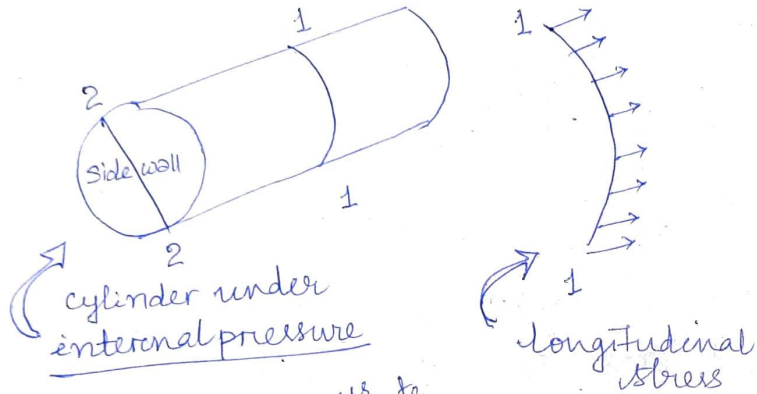 1
1
2
Side wall
1
2
1
cylinder under
internal pressure
longitudinal
stress